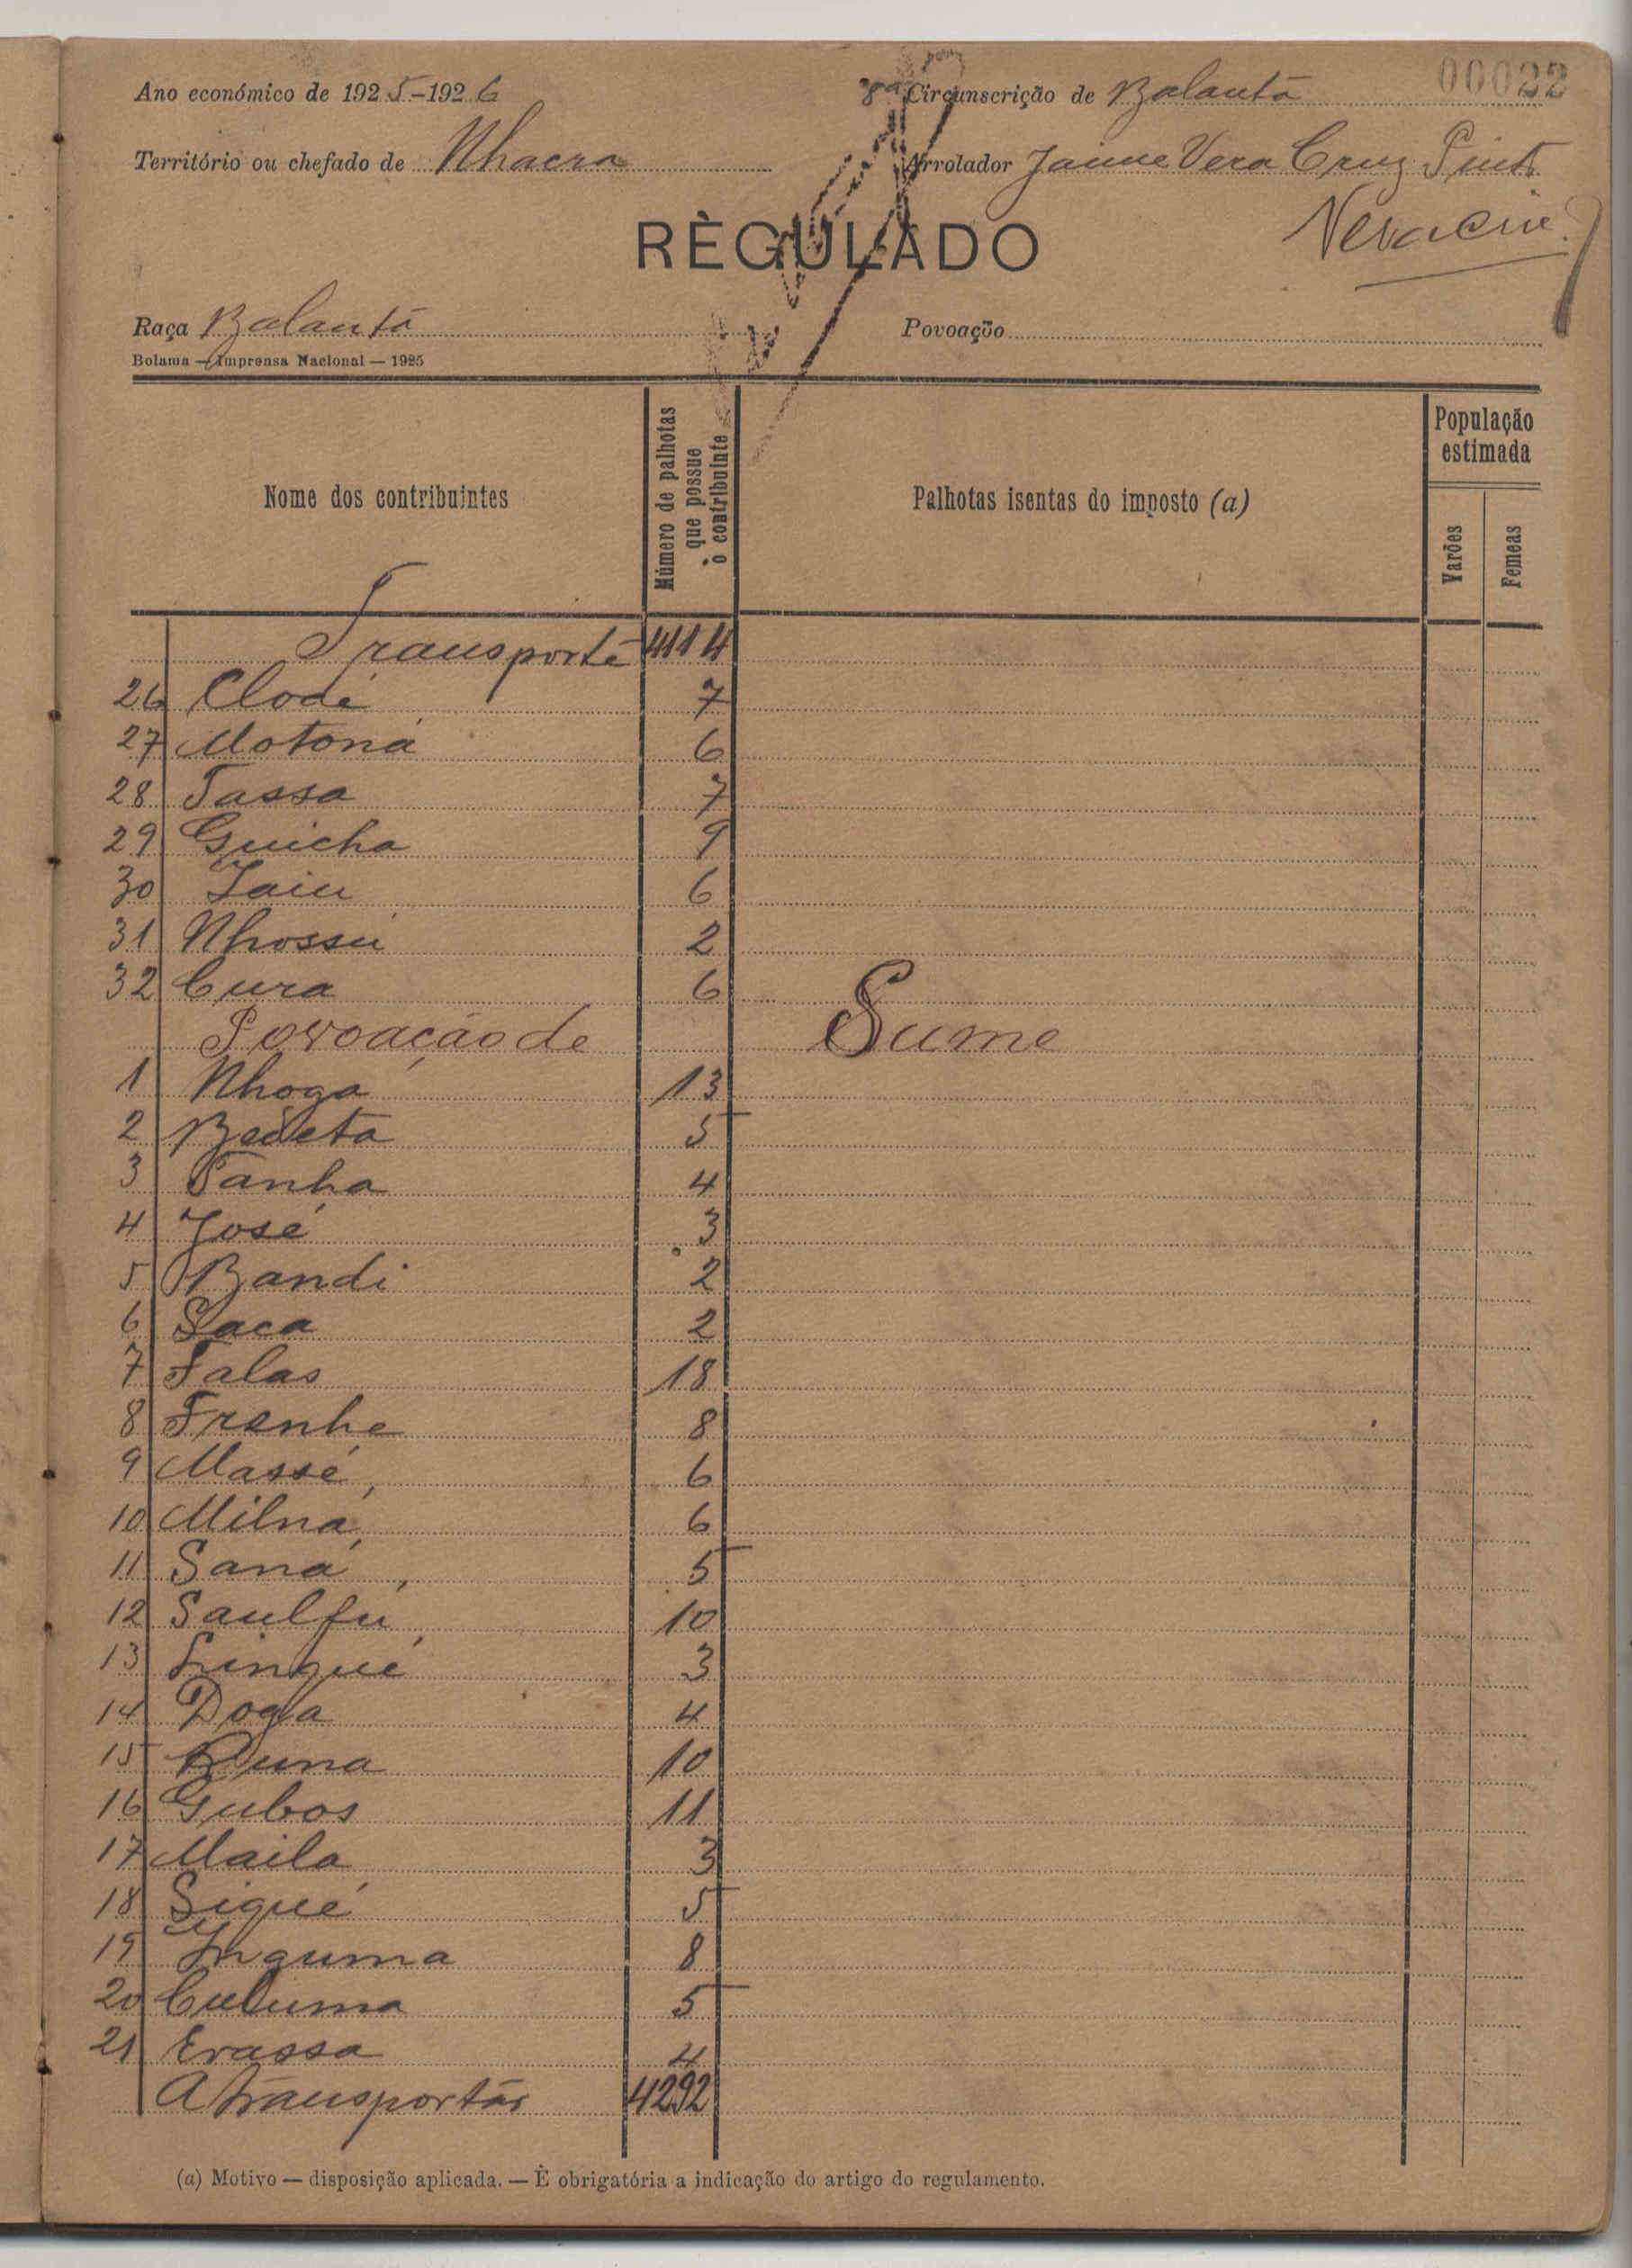 Ano económico de 1925-1926
8ª Circunscrição de Balanta
00022
Território ou chefado de Nhacra
Arrolador Jaime Vera Cruz Pinto
RÈGULADO
Raça Balanta
Povoação
Bolama — Imprensa Nacional — 1925
Nome dos contribuintes
Número de palhotas que possue o contribuinte
Palhotas isentas do imposto (a)
População estimada
Varões
Femeas
Transporte 4114
26 Clodé 7
27 Motoná 6
28 Tassa 7
29 Guicha 9
30 Iaiu 6
31 Nhossú 2
32 Cura 6
Povoação de Sume
1 Nhoga 13
2 Bedeta 5
3 Panha 4
4 José 3
5 Bandi 2
6 Saca 2
7 Falas 18
8 Frenhe 8
9 Massé 6
10 Milná 6
11 Saná 5
12 Saulfú 10
13 Lingué 3
14 Doga 4
15 Buna 10
16 Gubos 11
17 Maila 3
18 Sigué 5
19 Inguma 8
20 Culuma 5
21 Erassa 4
A transportar 4292
(a) Motivo — disposição aplicada. — È obrigatória a indicação do artigo do regulamento.